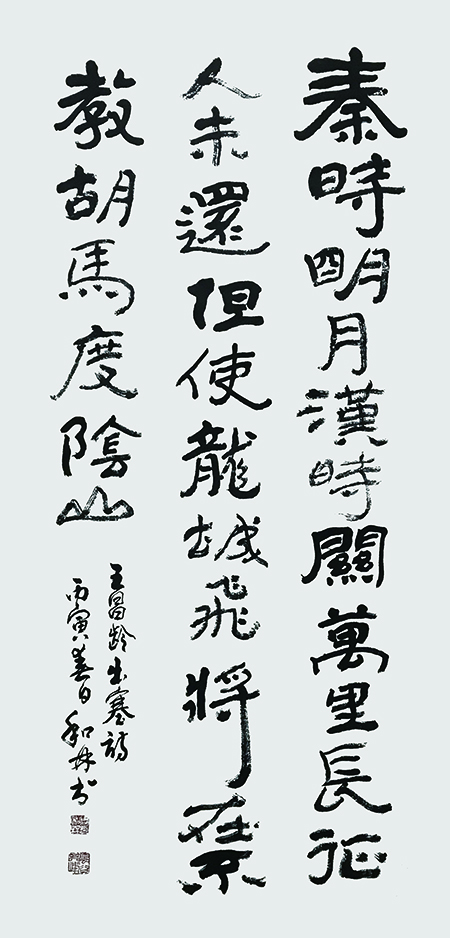 秦時明月漢時關萬里長征
人未還但使龍城飛將在不
教胡馬度陰山
王昌齡出塞詩
丙寅春日和书